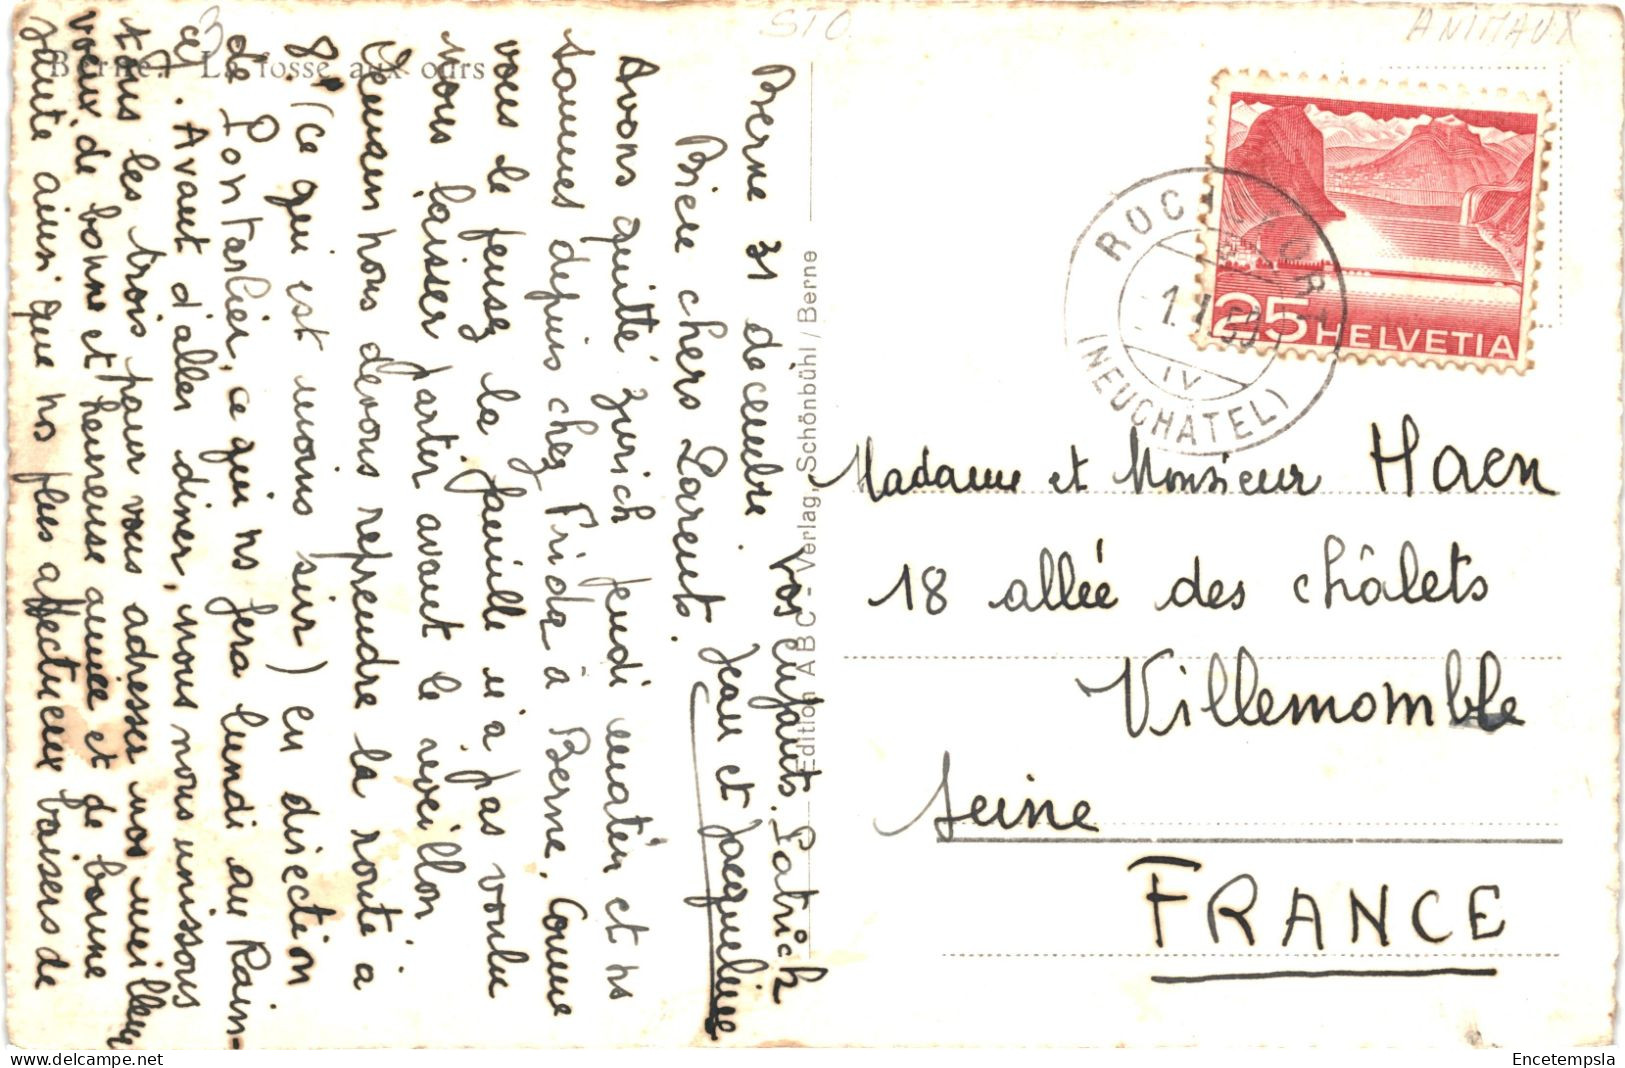 STO
ANIMAUX
3
Berne. La fosse aux ours
Berne 31 decembre
Bien chers Parents.
Avons quitté Zurich jeudi matin et ns
sommes depuis chez Frida à Berne. Comme
vous le pensez la famille n'a pas voulu
nous laisser partir avant le réveillon
Demain nous devons reprendre la route à
8h (ce qui est moins sûr) en direction
de Pontarlier, ce qui ns fera lundi au Rain-
cy. Avant d'aller diner, nous nous unissons
tous les trois pour vous adresser nos meilleurs
voeux de bonne et heureuse année et de bonne
santé ainsi que ns plus affectueux baisers de
vos enfants. Patrick
Jean et Jacqueline
Edition ABC - Verlag, Schönbühl/Berne
25 HELVETIA
ROCHEFORT
IV
(NEUCHÂTEL)
Madame et Monsieur Haen
18 allée des châlets
Villemomble
Seine
FRANCE
Encetempsla